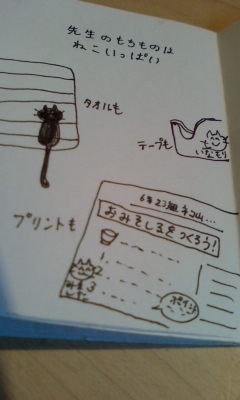 先生のもちものは
ねこいっぱい
タオルも
テープも
いなもり
プリントも
6年23組ネコ山...
おみそしるをつくろう!
1
2
3
ポイント